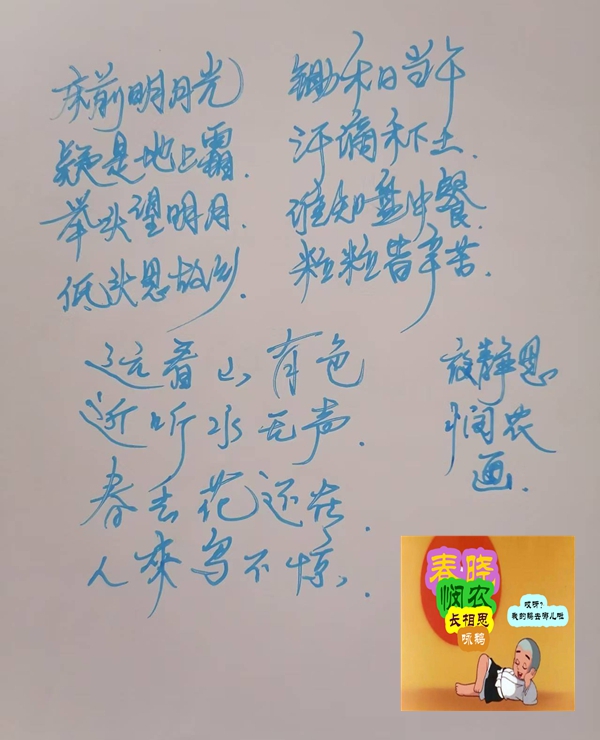 床前明月光
疑是地上霜.
举头望明月.
低头思故乡.
锄禾日当午
汗滴禾下土.
谁知盘中餐.
粒粒皆辛苦.
远看山有色
近听水无声.
春去花还在.
人來鸟不惊.
夜静思
悯农
画.
春·晓
悯农
长相思
咏鹅
哎呀？
我的鹅去哪儿啦